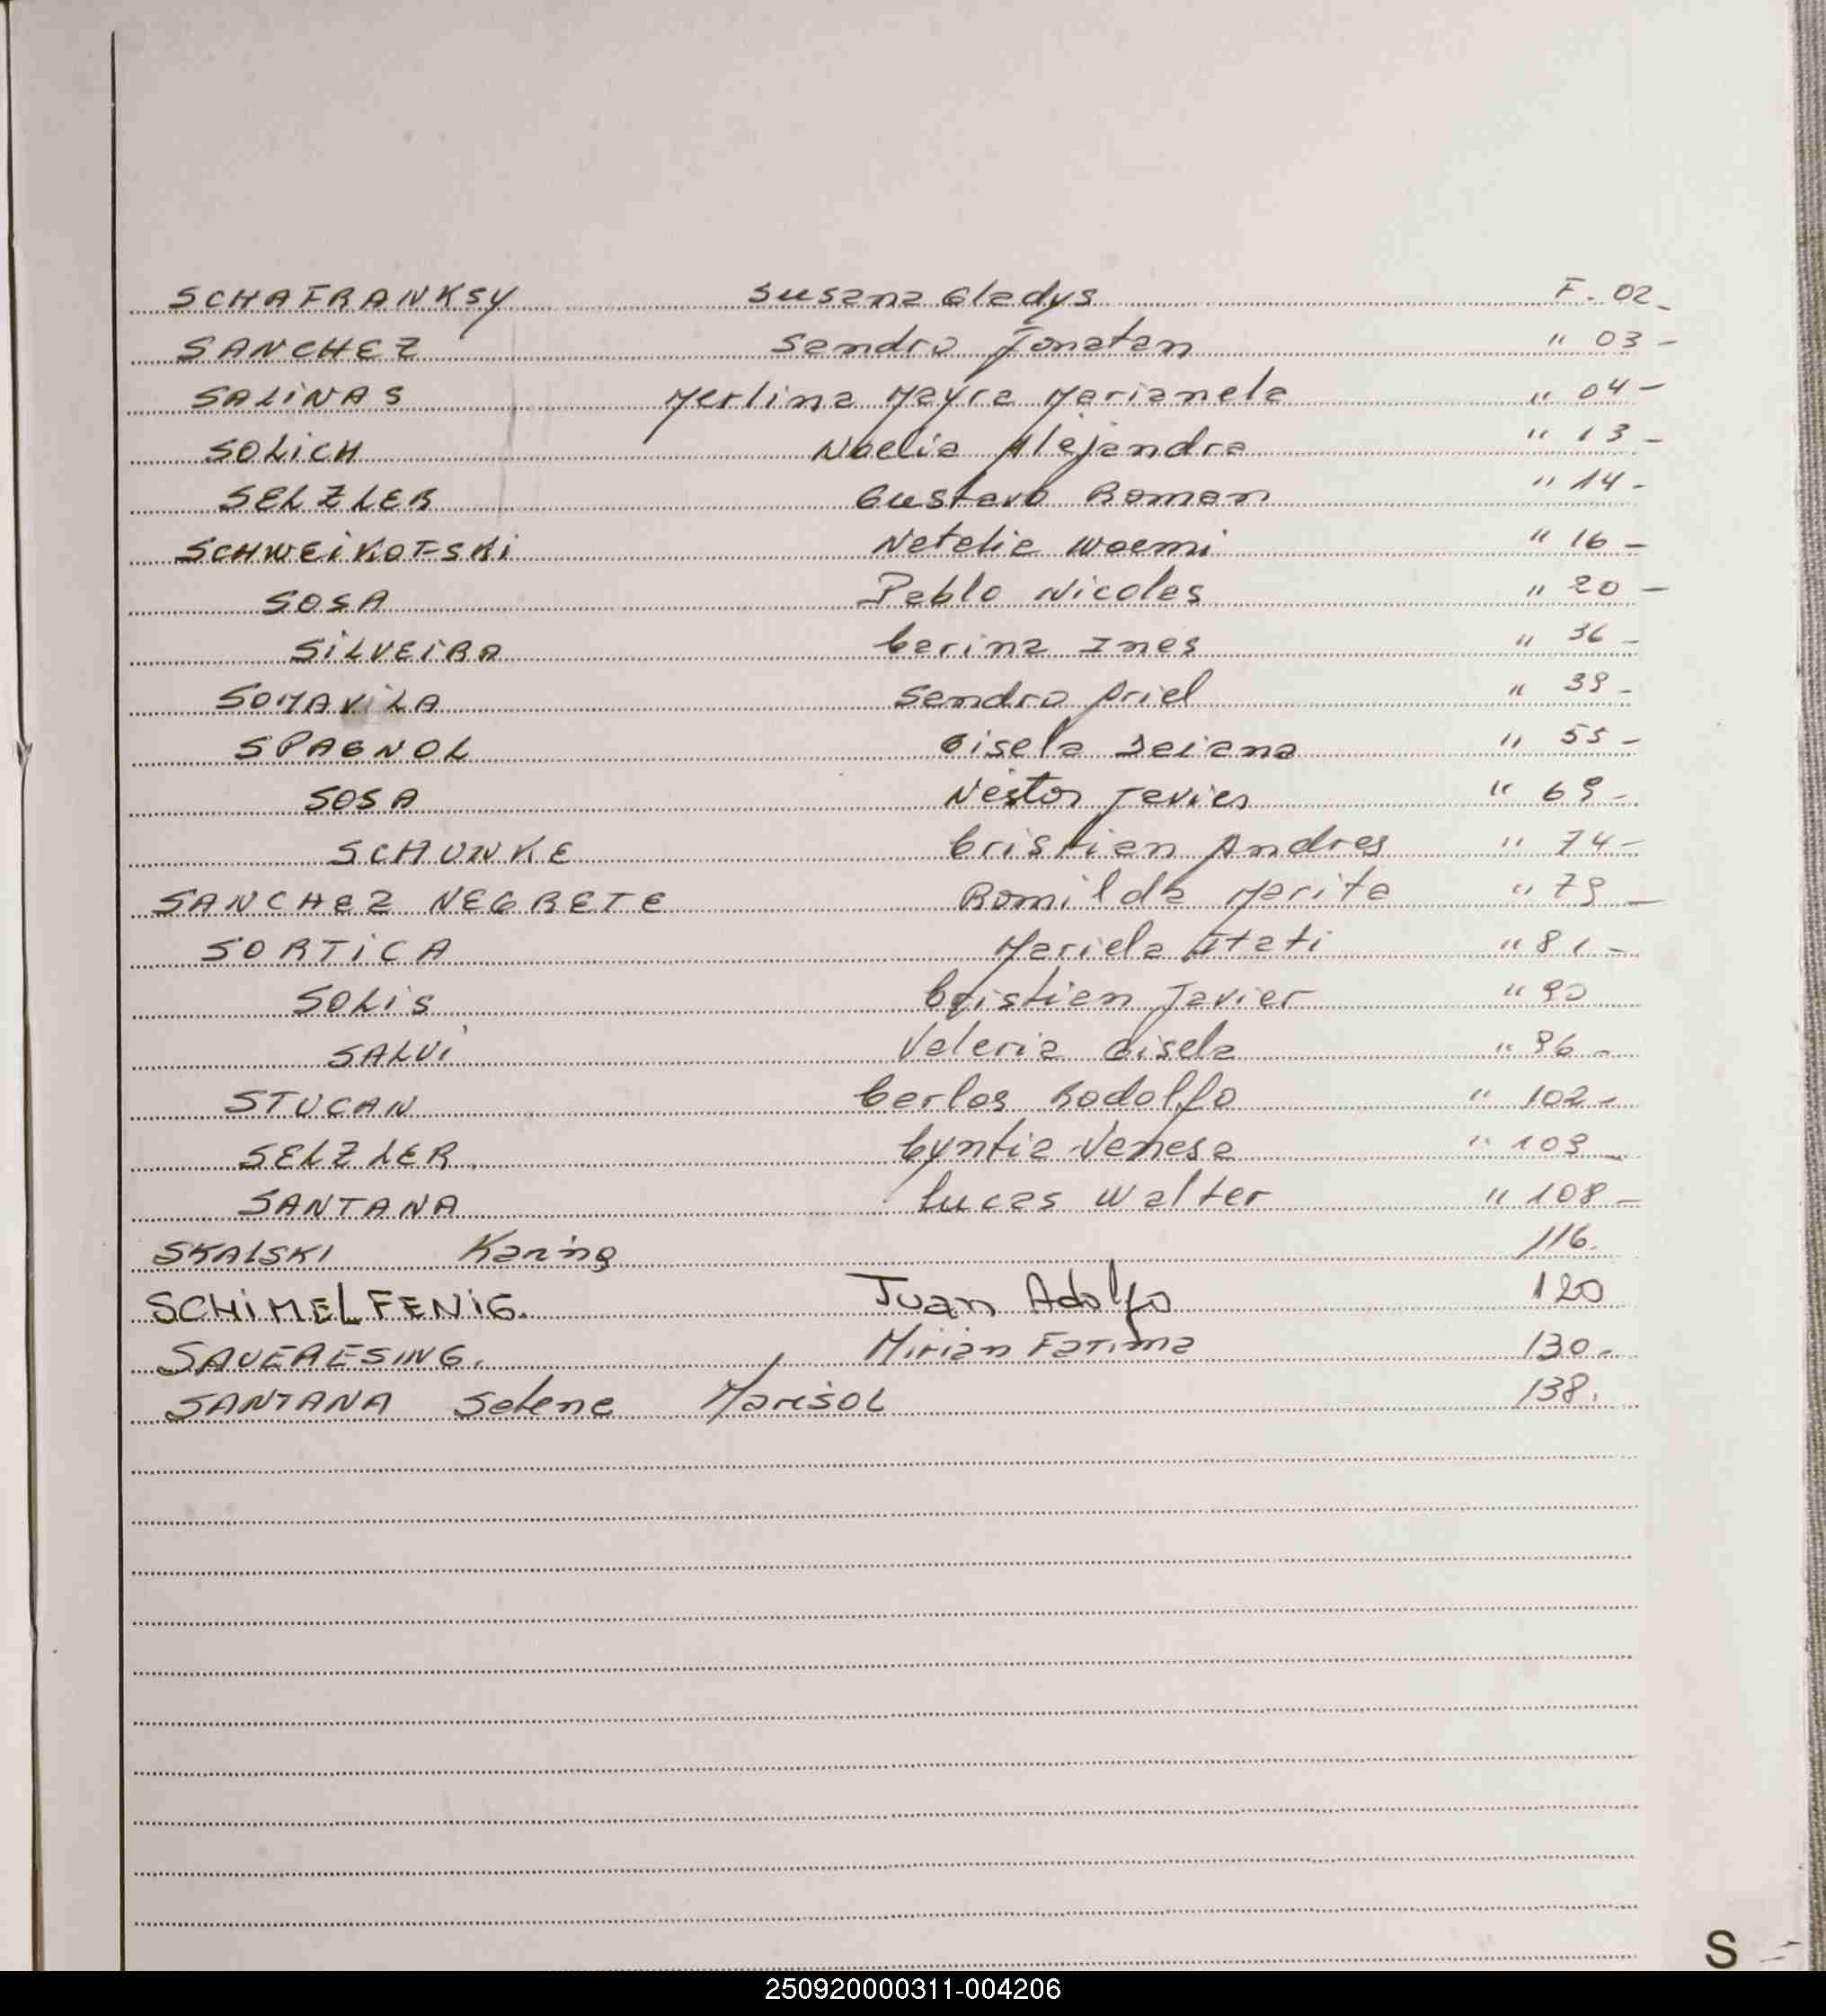 SCHAFRANKSY Susana Gladys F. 02-
SANCHEZ Sandro Jonatan " 03-
SALINAS Merlina Mayra Marianela " 04-
SOLICH Noelia Alejandra " 13-
SELZLER Gustavo Roman " 14-
SCHWEIKOFSKI Natalia Noemi " 16-
SOSA Pablo Nicolas " 20-
SILVEIRA Carina Ines " 36-
SOMAVILA Sandro Ariel " 39-
SPAGNOL Gisela Daiana " 55-
SOSA Nestor Javier " 69-
SCHUNKE Cristian Andres " 74-
SANCHEZ NEGRETE Romilda Marita " 79-
SORTICA Mariela Itati " 81-
SOLIS Cristian Javier " 90
SALVI Valeria Gisela " 96-
STUCAN Carlos Rodolfo " 102-
SELZLER Cyntia Vanesa " 103-
SANTANA Lucas Walter " 108-
SKALSKI Karina 116.
SCHIMELFENIG. Juan Adolfo 120
SAUERESING. Mirian Fatima 130.
SANTANA Selene Marisol 138.
S
250920000311-004206